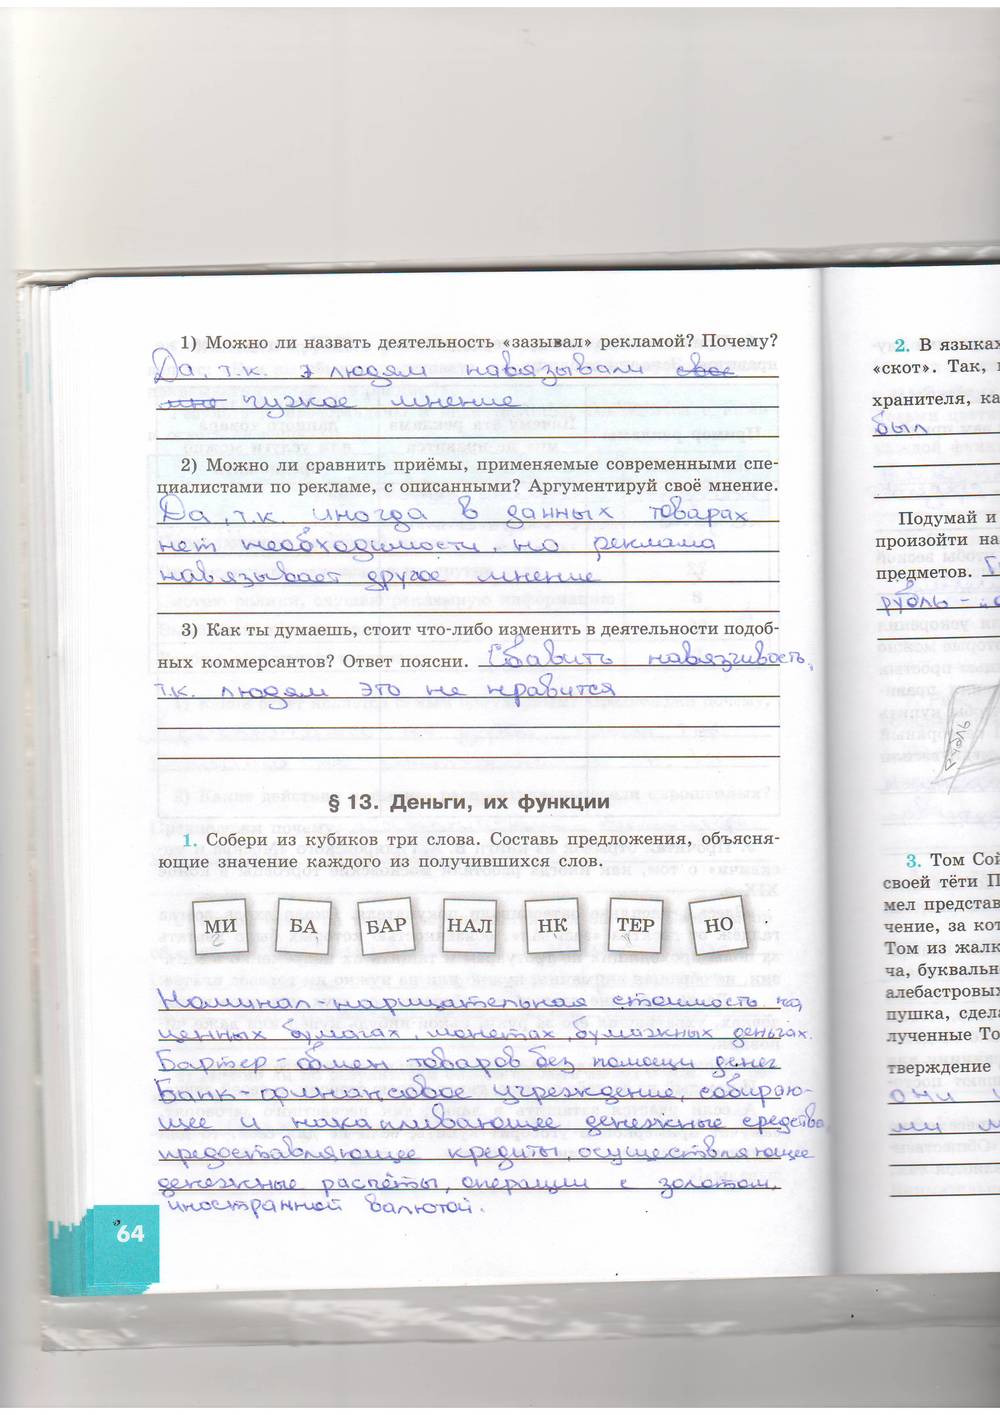 1) Можно ли назвать деятельность «зазывал» рекламой? Почему?
Да, т.к. людям навязывали свое
мне чужое мнение
2) Можно ли сравнить приёмы, применяемые современными спе-
циалистами по рекламе, с описанными? Аргументируй своё мнение.
Да, т.к. иногда в данных товарах
нет необходимости, но реклама
навязывает другое мнение
3) Как ты думаешь, стоит что-либо изменить в деятельности подоб-
ных коммерсантов? Ответ поясни. Сбавить навязчивость,
т.к. людям это не нравится
§ 13. Деньги, их функции
1. Собери из кубиков три слова. Составь предложения, объясня-
ющие значение каждого из получившихся слов.
МИ БА БАР НАЛ НК ТЕР НО
Номинал - нарицательная стоимость на
ценных бумагах, монетах, бумажных деньгах.
Бартер - обмен товаров без помощи денег
Банк - финансовое учреждение, собираю-
щее и накапливающее денежные средства,
предоставляющее кредиты, осуществляющее
денежные расчёты, операции с золотом,
иностранной валютой.
64
2. В языках
«скот». Так,
хранителя, ка
был
Подумай и
произойти на
предметов.
рубль -
рубль
3. Том Сой
своей тёти П
мел представ
чение, за кот
Том из жалк
ча, буквальн
алебастровых
пушка, сдела
лученные То
тверждение
они
ми